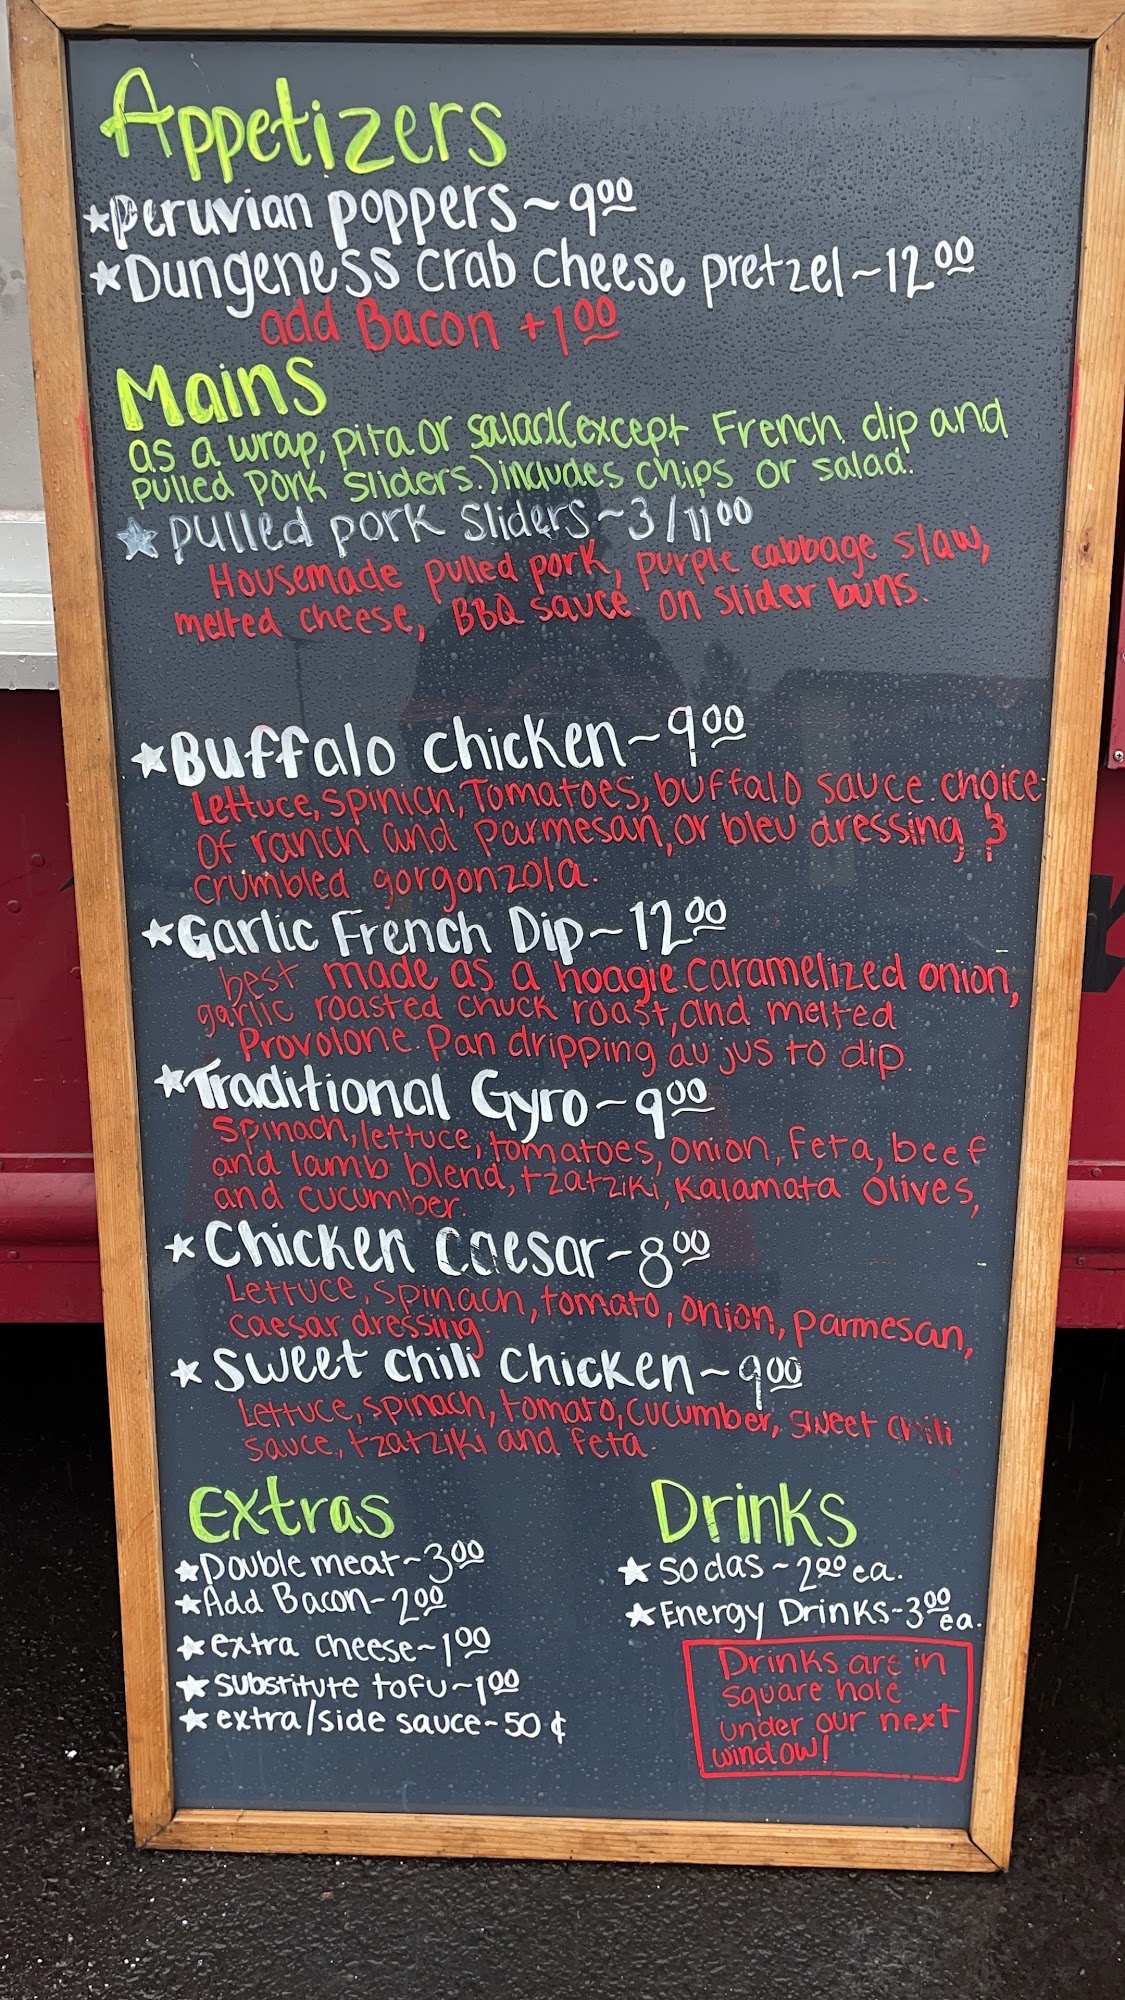 Appetizers
★Peruvian poppers~9.00
★Dungeness crab cheese pretzel~12.00
add Bacon +1.00
Mains
as a wrap, pita or salad(except French dip and
pulled pork sliders.)includes chips or salad.
★pulled pork Sliders~3/11.00
Housemade pulled pork, purple cabbage slaw,
melted cheese, BBQ sauce on slider buns.
★Buffalo chicken~9.00
Lettuce, spinich, Tomatoes, buffalo sauce. choice
of ranch and parmesan, or bleu dressing &
crumbled gorgonzola.
★Garlic French Dip~12.00
best made as a hoagie. Caramelized onion,
garlic roasted chuck roast, and melted
Provolone. Pan dripping au jus to dip.
★Traditional Gyro~9.00
spinach, lettuce, tomatoes, onion, Feta, beef
and lamb blend, tzatziki, Kalamata Olives,
and cucumber.
★Chicken Caesar~8.00
Lettuce, spinach, tomato, onion, parmesan,
caesar dressing.
★Sweet chili chicken~9.00
Lettuce, spinach, tomato, cucumber, sweet chili
sauce, tzatziki and feta.
Extras
★Double meat~3.00
★Add Bacon-2.00
★extra cheese~1.00
★substitute tofu~1.00
★extra/side sauce-50¢
Drinks
★sodas~2.00 ea.
★Energy Drinks-3.00 ea.
Drinks are in
square hole
under our next
window!